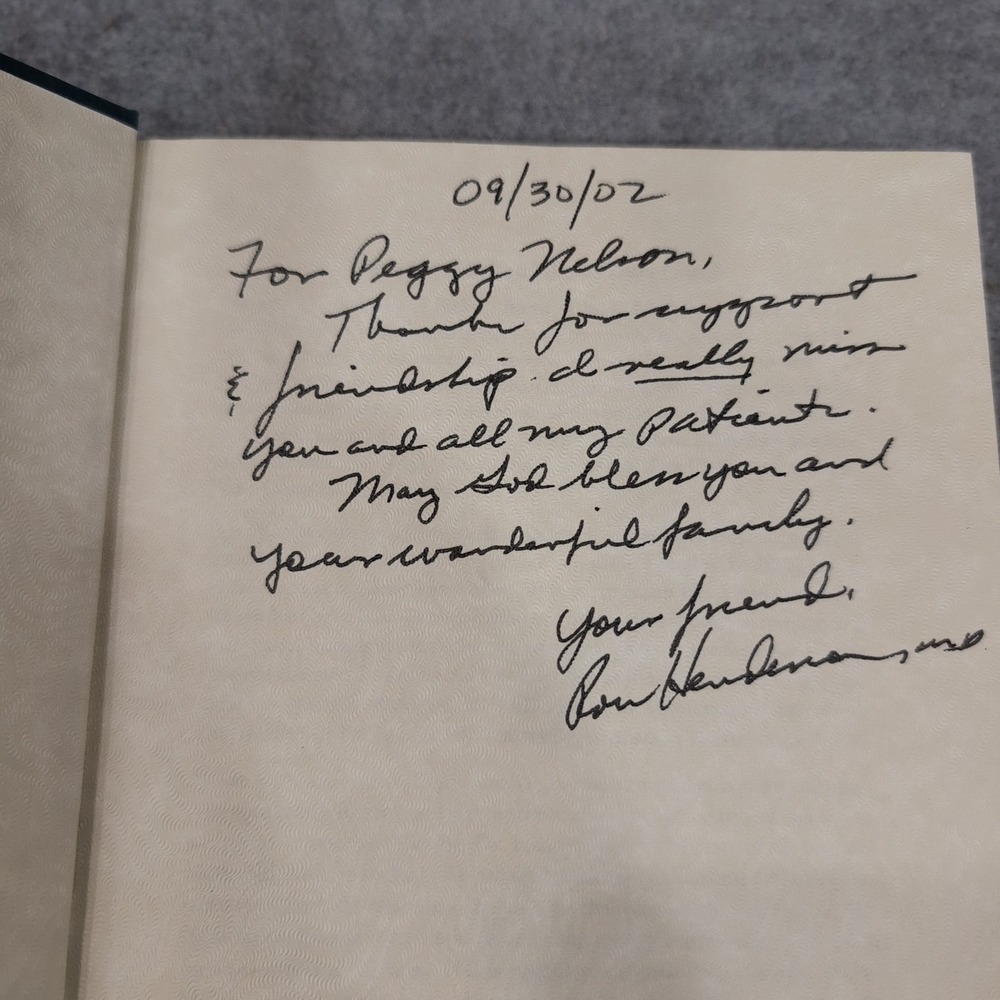 09/30/02
For Peggy Nelson,
Thanks for support
& friendship. I really miss
you and all my patients.
May God bless you and
your wonderful family.
Your friend,
Ron Henderson, MD